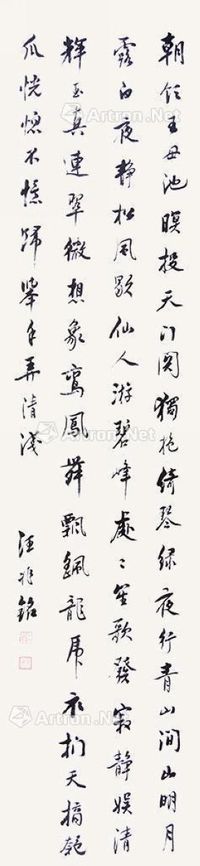 朝飲王母池暝投天门関獨抱綺琴綠夜行青山间山明月
露白夜靜松風歇仙人游碧峰處々笙歌發寂靜娱清
輝玉真連翠微想象鸞鳳舞飄颻龍虎衣捫天摘匏
瓜恍惚不憶歸舉手弄清淺
汪兆銘
Artron.Net